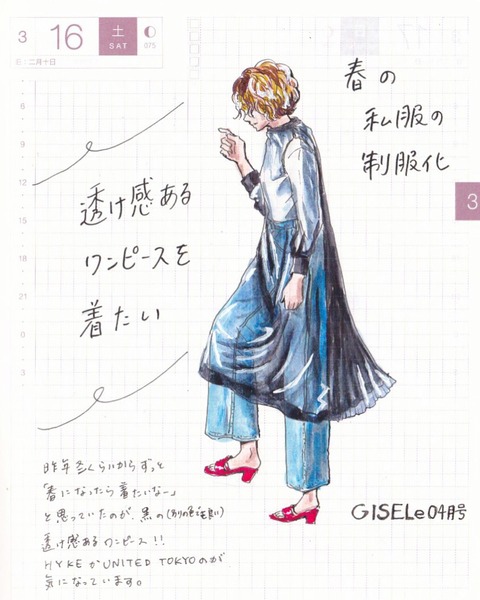 3 16 土 SAT 075
旧:二月十日
春の
私服の
制服化
透け感ある
ワンピースを
着たい
3
6
9
12
15
18
21
0
3
昨年冬くらいからずっと
「春になったら着たいなー」
と思っていたのが、黒の(別の色でも良い)
透け感あるワンピース!!
HYKEかUNITED TOKYOのが
気になっています。
GISELe 04月号